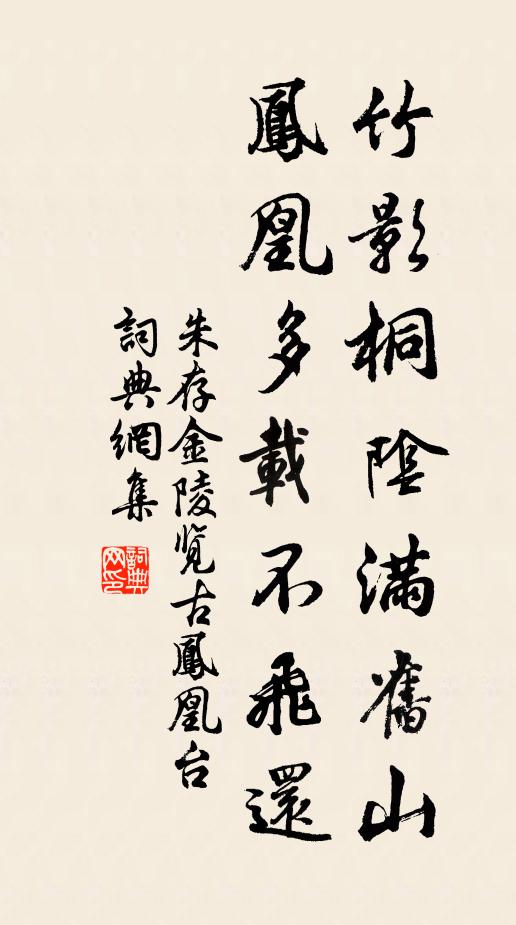 竹影桐陰滿舊山
鳳凰多載不飛還
朱存金陵览古鳳凰台
詞典網集
詞典网印